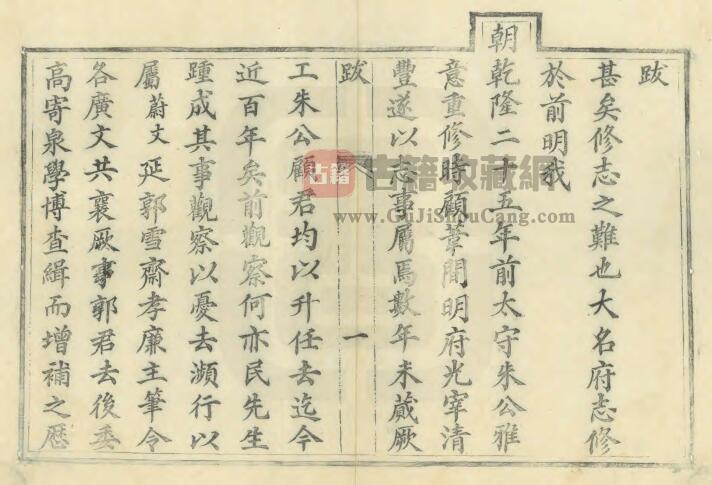 跋
甚矣修志之難也大名府志修
於前明我
朝乾隆二十五年前太守朱公雅
意重修時顧葦間明府光宰清
豐遂以志事屬焉數年未蕆厥
跋 一
工朱公顧君均以升任去迄今
近百年矣前觀察何亦民先生
踵成其事觀察以憂去瀕行以
屬蔚文延郭雪齋孝廉主筆令
各廣文共襄厥事郭君去後委
高寄泉學博查緝而增補之歷
古籍 古籍收藏網
www.GuJiShouCang.com